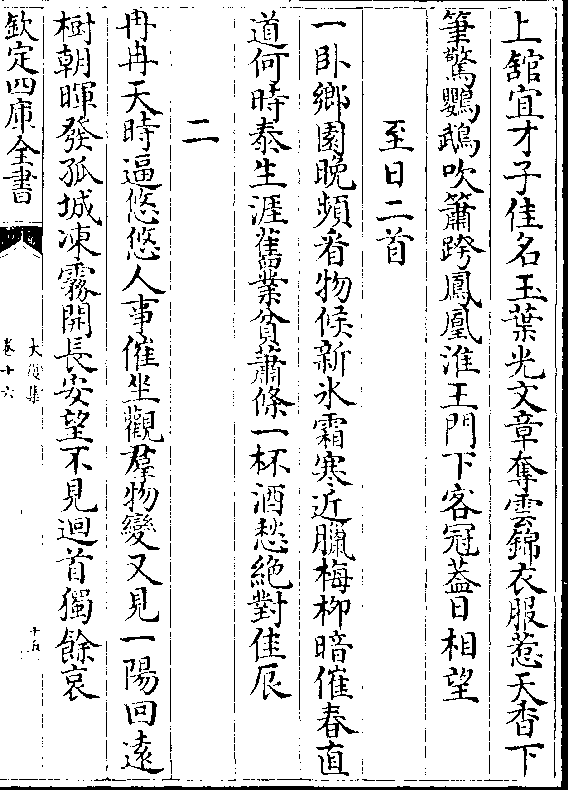 上舘宜才子佳名玉葉光文章奪雲錦衣服惹天香下
筆驚鸚鵡吹簫跨鳳凰淮王門下客冠葢日相望
至日二首
一卧鄉園晚頻看物候新氷霜寒近臘梅栁暗催春直
道何時泰生涯舊業貧蕭條一杯酒愁絶對佳辰
二
冉冉天時逼悠悠人事催坐觀羣物變又見一陽回逺
樹朝暉發孤城凍霧開長安望不見迴首獨餘哀
欽定四庫全書
大復集
卷十六
十五